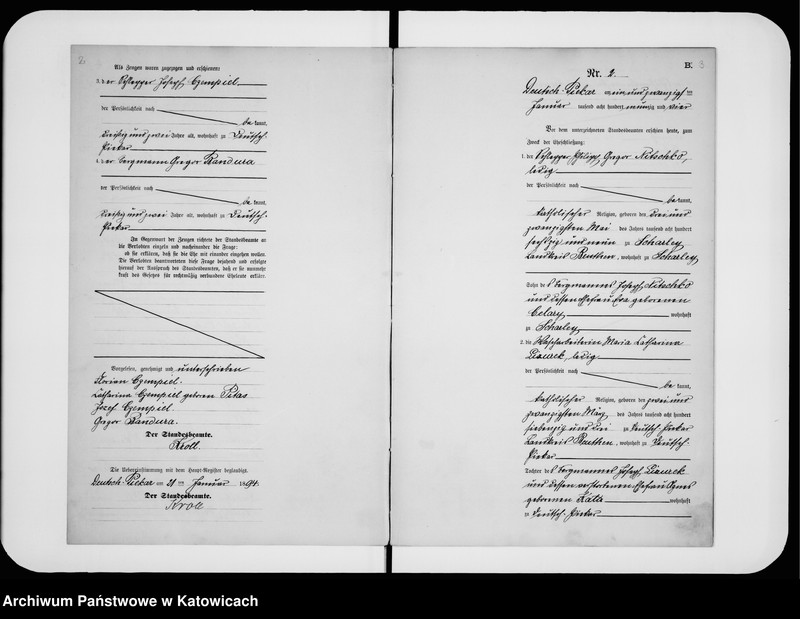 2.
Als Zeugen waren zugezogen und erschienen:
3. der Schlepper Joseph Czempiel
der Persönlichkeit nach
bekannt,
dreißig und zwei Jahre alt, wohnhaft zu Deutsch-
Piekar
4. der Bergmann Gregor Bandura
der Persönlichkeit nach
bekannt,
dreißig und zwei Jahre alt, wohnhaft zu Deutsch-
Piekar
In Gegenwart der Zeugen richtete der Standesbeamte an
die Verlobten einzeln und nacheinander die Frage:
ob sie erklären, daß sie die Ehe mit einander eingehen wollen.
Die Verlobten beantworteten diese Frage bejahend und erfolgte
hierauf der Ausspruch des Standesbeamten, daß er sie nunmehr
kraft des Gesetzes für rechtmäßig verbundene Eheleute erkläre.
Vorgelesen, genehmigt und unterschrieben
Florian Czempiel.
Catharina Czempiel geboren Pitas
Józef Czempiel.
Gregor Bandura.
Der Standesbeamte.
Kroll.
Die Uebereinstimmung mit dem Haupt-Register beglaubigt.
Deutsch-Piekar am 21 ten Januar 1894.
Der Standesbeamte.
Kroll
B. 3
Nr. 2.
Deutsch-Piekar am ein und zwanzigsten
Januar tausend acht hundert neunzig und vier
Vor dem unterzeichneten Standesbeamten erschien heute, zum
Zweck der Eheschließung:
1. der Schlepper Philipp Gregor Nitschko,
ledig
der Persönlichkeit nach
bekannt,
katholischer Religion, geboren den drei und
zwanzigsten Mai des Jahres tausend acht hundert
sechszig und neun zu Scharley,
Landkreis Beuthen, wohnhaft zu Scharley,
Sohn des Bergmannes Joseph Nitschko
und dessen Ehefrau Eva geborenen
Celary wohnhaft
zu Scharley
2. die Wäscharbeiterin Maria Catharina
ledig
der Persönlichkeit nach
bekannt,
katholischer Religion, geboren den zwei und
zwanzigsten März des Jahres tausend acht hundert
siebenzig und drei zu Deutsch-Piekar
Landkreis Beuthen, wohnhaft zu Deutsch-
Piekar
Tochter des Bergmannes Joseph
und dessen verstorbenen Ehefrau Agnes
geborenen wohnhaft
zu Deutsch-Piekar
Archiwum Państwowe w Katowicach